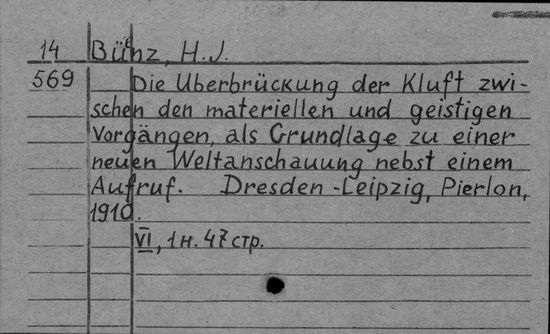 14 Bünz, H.J.
569 Die Uberbrückung der Kluft zwi-
schen den materiellen und geistigen
Vorgängen, als Grundlage zu einer
neuen Weltanschauung nebst einem
Aufruf. Dresden-Leipzig, Pierlon,
1910.
VI, 1 н. 47 стр.